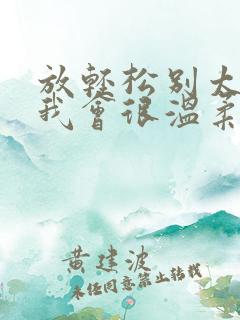 放轻松别太
我会很温柔
黄建波
未经同意禁止转载